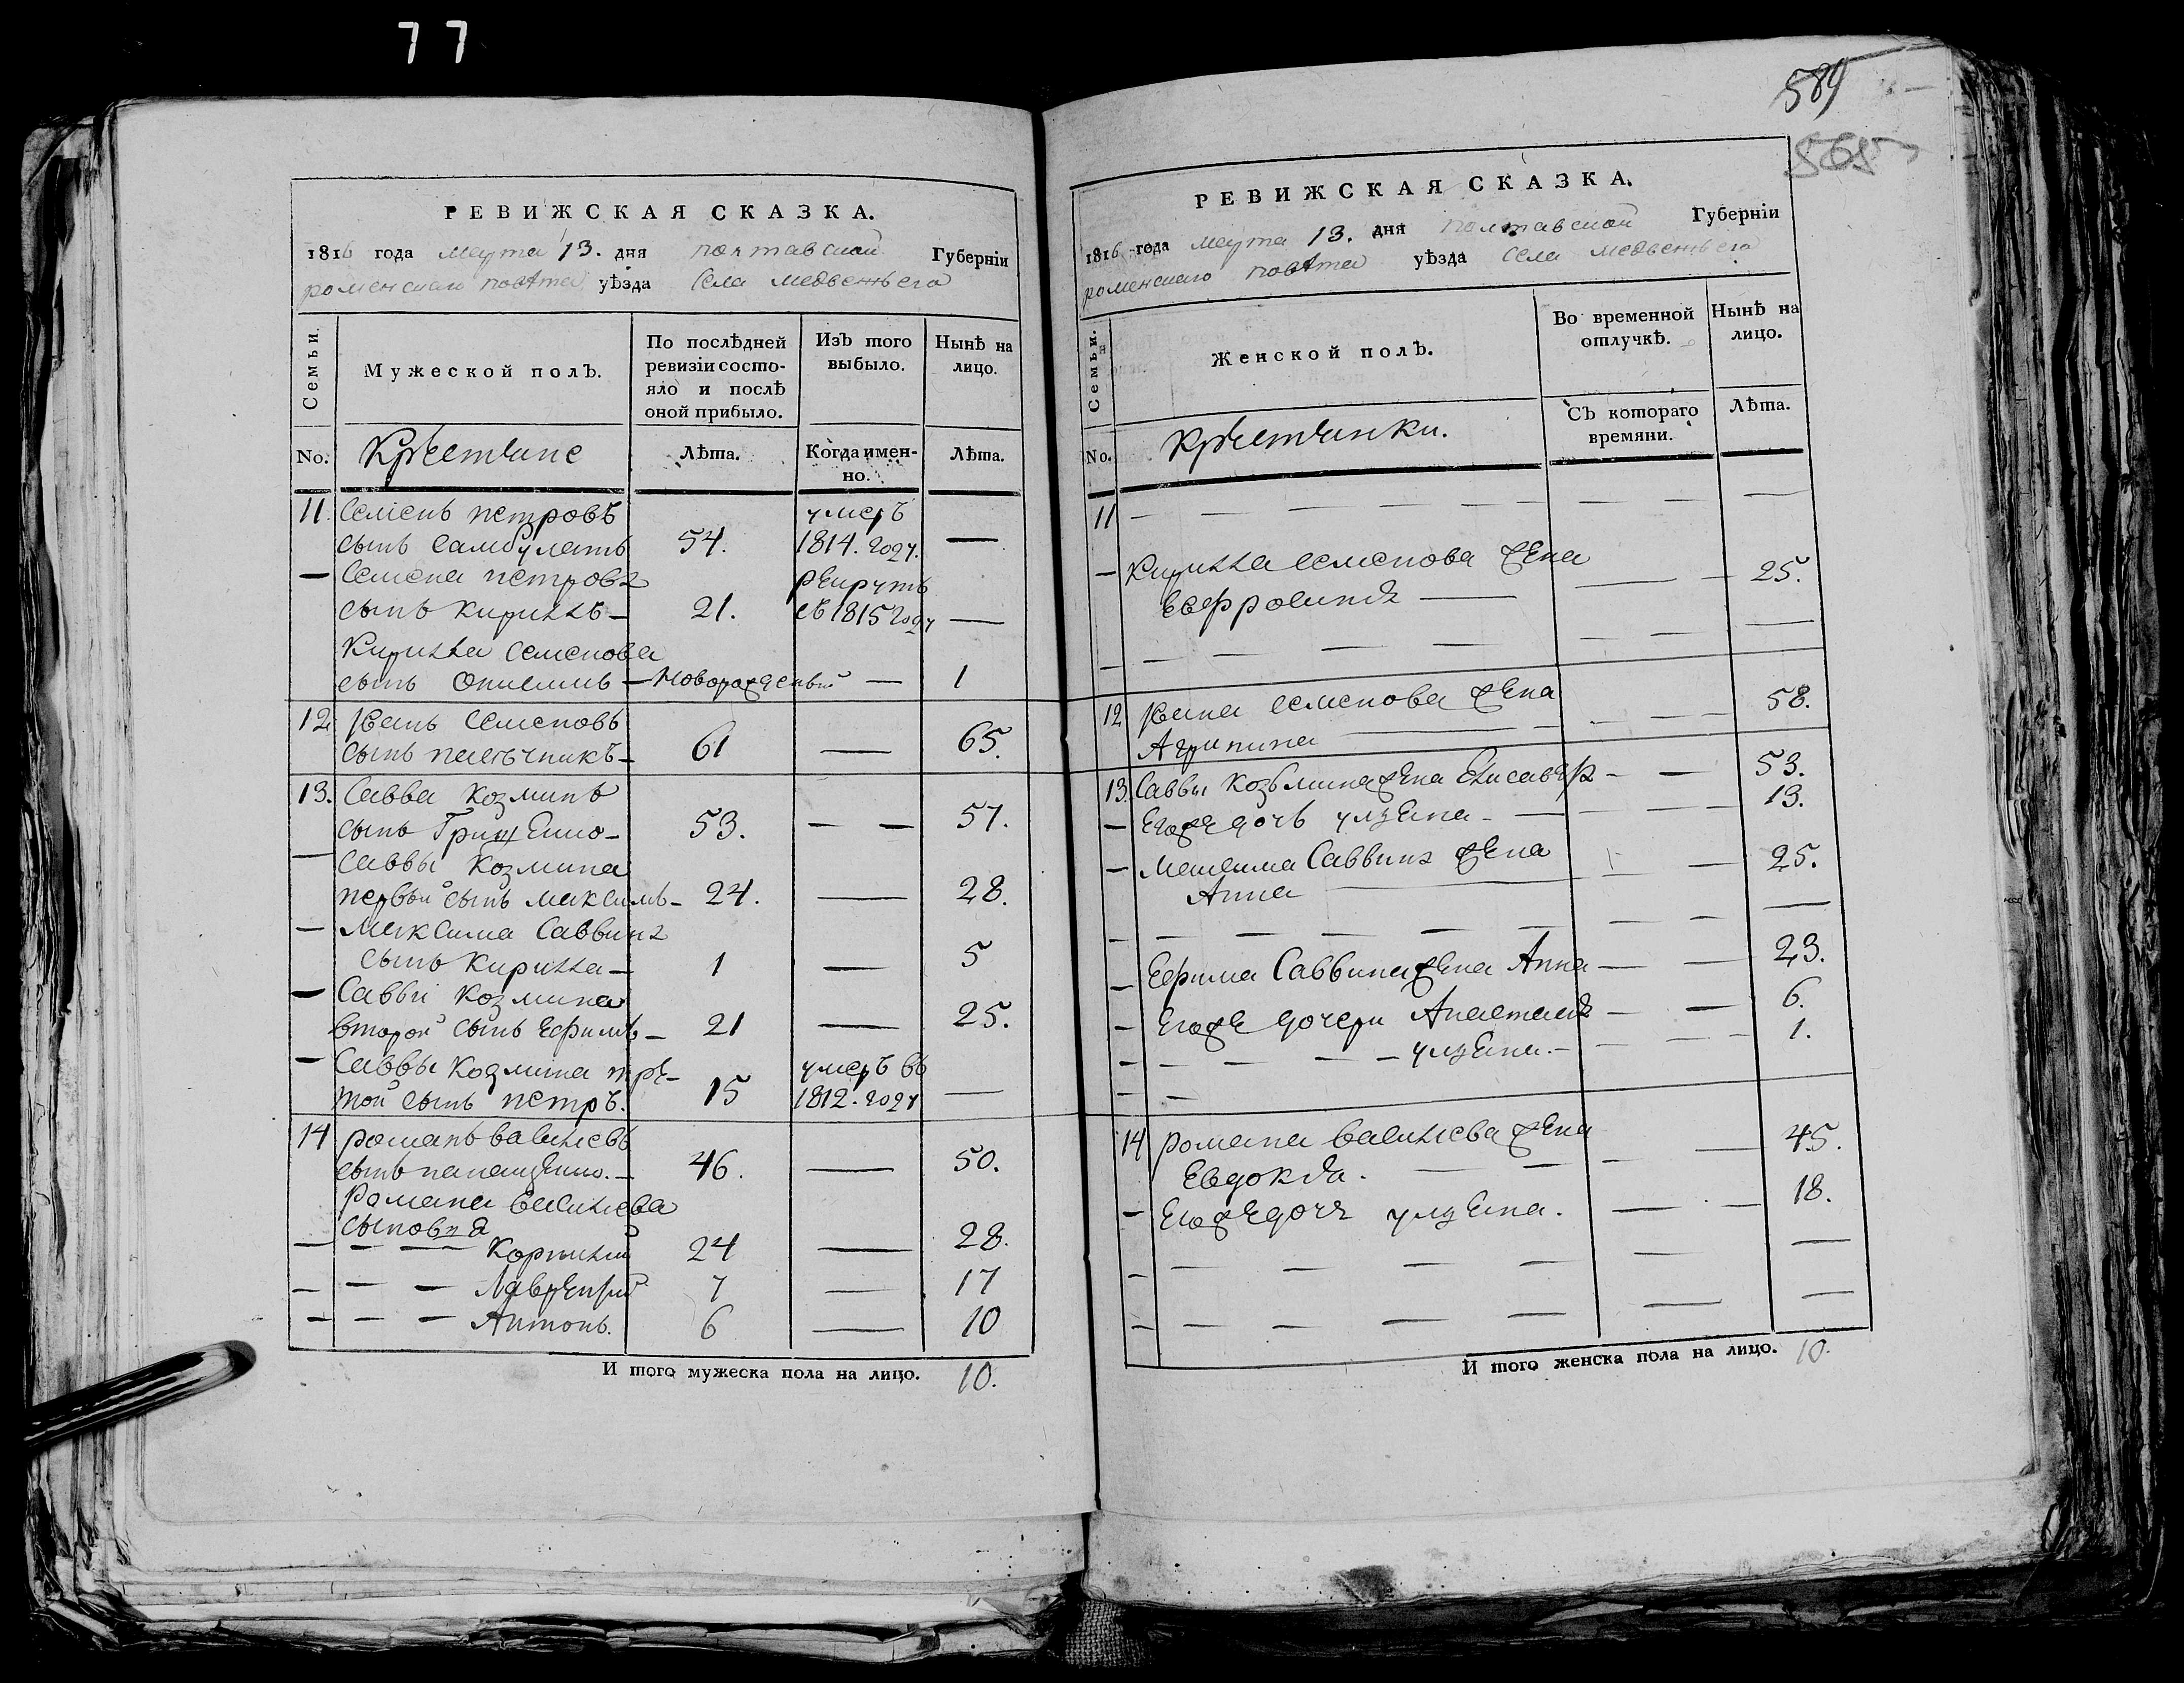 77
589
565
РЕВИЖСКАЯ СКАЗКА.
1816 года марта 13. дня полтавской Губерніи
роменскаго повѣта уѣзда села медвежьего
Семьи.
Мужеской полъ.
По послѣдней ревизіи состо-
яло и послѣ оной прибыло.
Изъ того выбыло.
Нынѣ на лицо.
No. Крестьяне Лѣта. Когда имен-
но. Лѣта.
11. Семенъ петровъ умеръ
сынъ 54. 1814. году. —
— Семена петрова рекрутъ
сынъ кирилъ — 21. въ 1815 году —
Кирилла семенова
сынъ — новорожденный — 1
12 Иванъ семеновъ
сынъ пасѣчникъ — 61 — 65.
13. Савва козминъ
сынъ Грищенко — 53. — — 57.
— Саввы козмина
первый сынъ максимъ — 24. — 28.
— Максима Саввина
сынъ кирилла — 1 — 5
— Саввы козмина
второй сынъ Ефимъ — 21 — 25.
— Саввы козмина тре- умеръ въ
той сынъ петръ. 15 1812. году —
14 романъ васильевъ
сынъ панащенко. — 46. — 50.
Романа васильева
сыновья
— — — Корнилий 24 — 28.
— — — Лаврентий 7 — 17
— — — Антонъ. 6 — 10
И того мужеска пола на лицо. 10.
РЕВИЖСКАЯ СКАЗКА.
1816 года марта 13. дня полтавской Губерніи
роменскаго повѣта уѣзда села медвежьего
Семьи.
Женской полъ.
Во временной отлучкѣ.
Нынѣ на лицо.
No. Крестьянки. Съ котораго времяни. Лѣта.
11 — — — — — — — —
— Кирилла семенова жена
Евфросинія — — — 25.
— — — — — — — —
12 Ивана семенова жена 58.
Агрипина — — — —
13. Саввы козьмина жена Елисавета — — 53.
— Егожъ дочь ульяна — — — — 13.
— Максима Саввина жена
Анна — — — 25.
— — — — — — — — —
— Ефима Саввина жена Анна — — 23.
— Егожъ дочери Анастасія — — 6.
— — — — ульяна. — — — 1.
— —
14 романа васильева жена
Евдокія. — — — — 45.
— Егожъ дочь ульяна. — — — 18.
— — — — — — —
— — — — — — —
И того женска пола на лицо. 10.